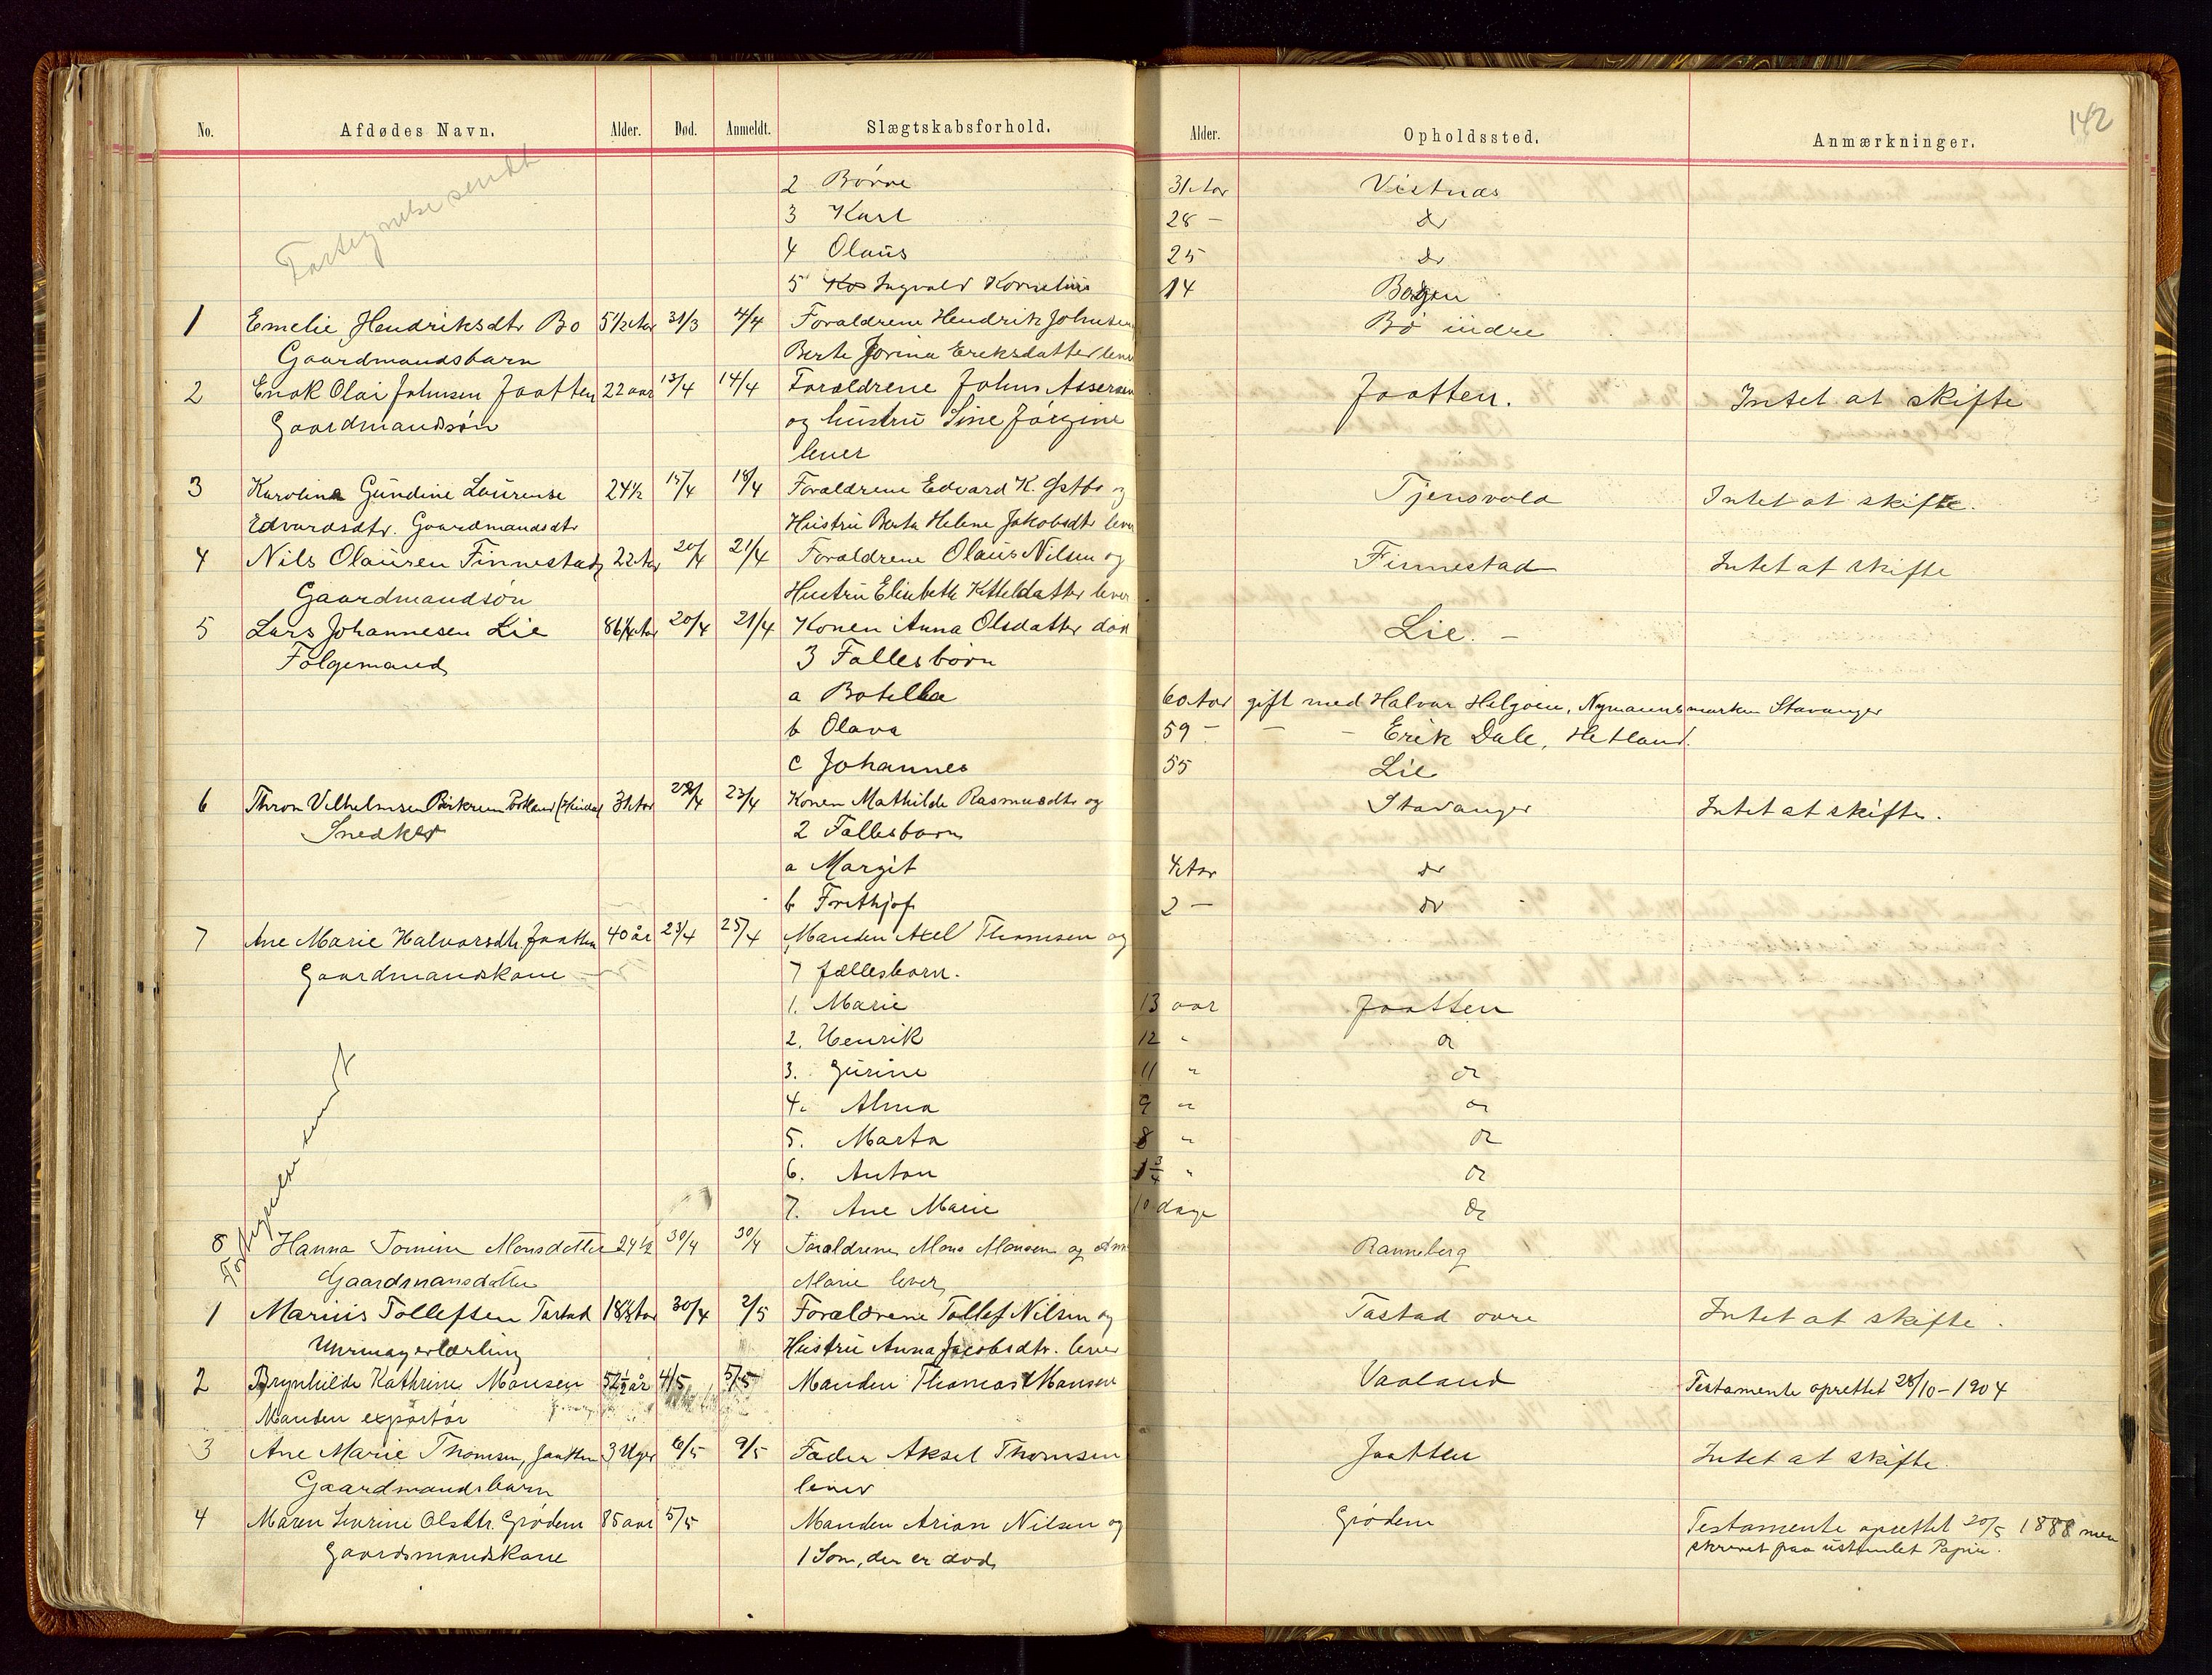 142
No. Afdødes Navn. Alder. Død. Anmeldt. Slægtskabsforhold. Alder. Opholdssted. Anmærkninger.
Fortegnelse sendt
2 Børre 31 Aar Vistnæs
3 Karl 28 - do
4 Olaus 25 do
5 Ingvald Kornelius 14 Bøgen
1 Emelie Hendriksdtr Bø 5 1/2 Aar 31/3 4/4 Forældrene Hendrik Johnsen Bø indre
Gaardmandsbarn Berte Jorina Ereksdatter lever
2 Enok Olai Johnsen Jaatten 22 aar 13/4 14/4 Forældrene John Assersen Jaatten. Intet at skifte
Gaardmandsøn og hustru Sine Jørgine
lever
3 Karolina Gundine Laurense 24 1/2 15/4 18/4 Forældrene Edvard K. og Tjensvold Intet at skifte.
Edvardsdtr. Gaardmandsdtr Hustru Berta Helene Jakobsdtr lever
4 Nils Olausen Finnestad 22 Aar 20/4 21/4 Forældrene Olaus Nilsen og Finnestad Intet at skifte
Gaardmandsøn Hustru Elisabeth Ketteldatter lever
5 Lars Johannesen Lie 86 1/4 Aar 20/4 21/4 Konen Anna Olsdatter død Lie. -
Følgemand 3 Fællesbørn
a Botilla 60 Aar gift med Halvar Helgøen, Nymannsmarken Stavanger
b Olava 59 - - - Erik Dale, Hetland.
c Johannes 55 Lie
6 Thron Vilhelmsen Birkrem 31 Aar 22/4 23/4 Konen Mathilde Rasmusdtr og Stavanger Intet at skifte.
Snedker 2 Fællesbørn
a Margit 4 Aar do
b Frithjof 2 - do
7 Ane Marie Halvorsdtr. Jaatten 40 år 23/4 25/4 Manden Axel Thomsen og
Gaardmandskone 7 fællesbørn.
1. Marie 13 aar Jaatten
2. Henrik 12 " do
3. Gurine 11 " do
4. Alma 9 " do
5. Marta 8 " do
6. Anton 1 3/4 " do
7. Ane Marie 10 dage do
Fortegnelse sendt
8 Hanna Tomine Monsdatter 24 1/2 30/4 30/4 Forældrene Mons Monsen og Ane Ranneberg
Gaardmansdatter Marie lever
1 Marius Tollefsen Tastad 18 1/2 Aar 30/4 2/5 Forældrene Tollef Nilsen og Tastad øvre Intet at skifte.
Uhrmagerlærling Hustru Anna Jacobsdtr. lever
2 Brynhilde Kathrine Monsen 52 1/2 år 4/5 5/5 Manden Thomas Monsen Vaaland Testamente oprettet 28/10-1904
Manden exportør
3 Ane Marie Thomsen, Jaatten 3 Uger 6/5 9/5 Fader Aksel Thomsen Jaatten Intet at skifte.
Gaardmandsbarn lever
4 Maren Serine Olsdtr. Grødem 85 aar 5/5 Manden Arian Nilsen og Grødem Testamente oprettet 20/5 1888 men
Gaardsmandskone 1 Søn, der er død, skrevet paa ustemlet Papir.